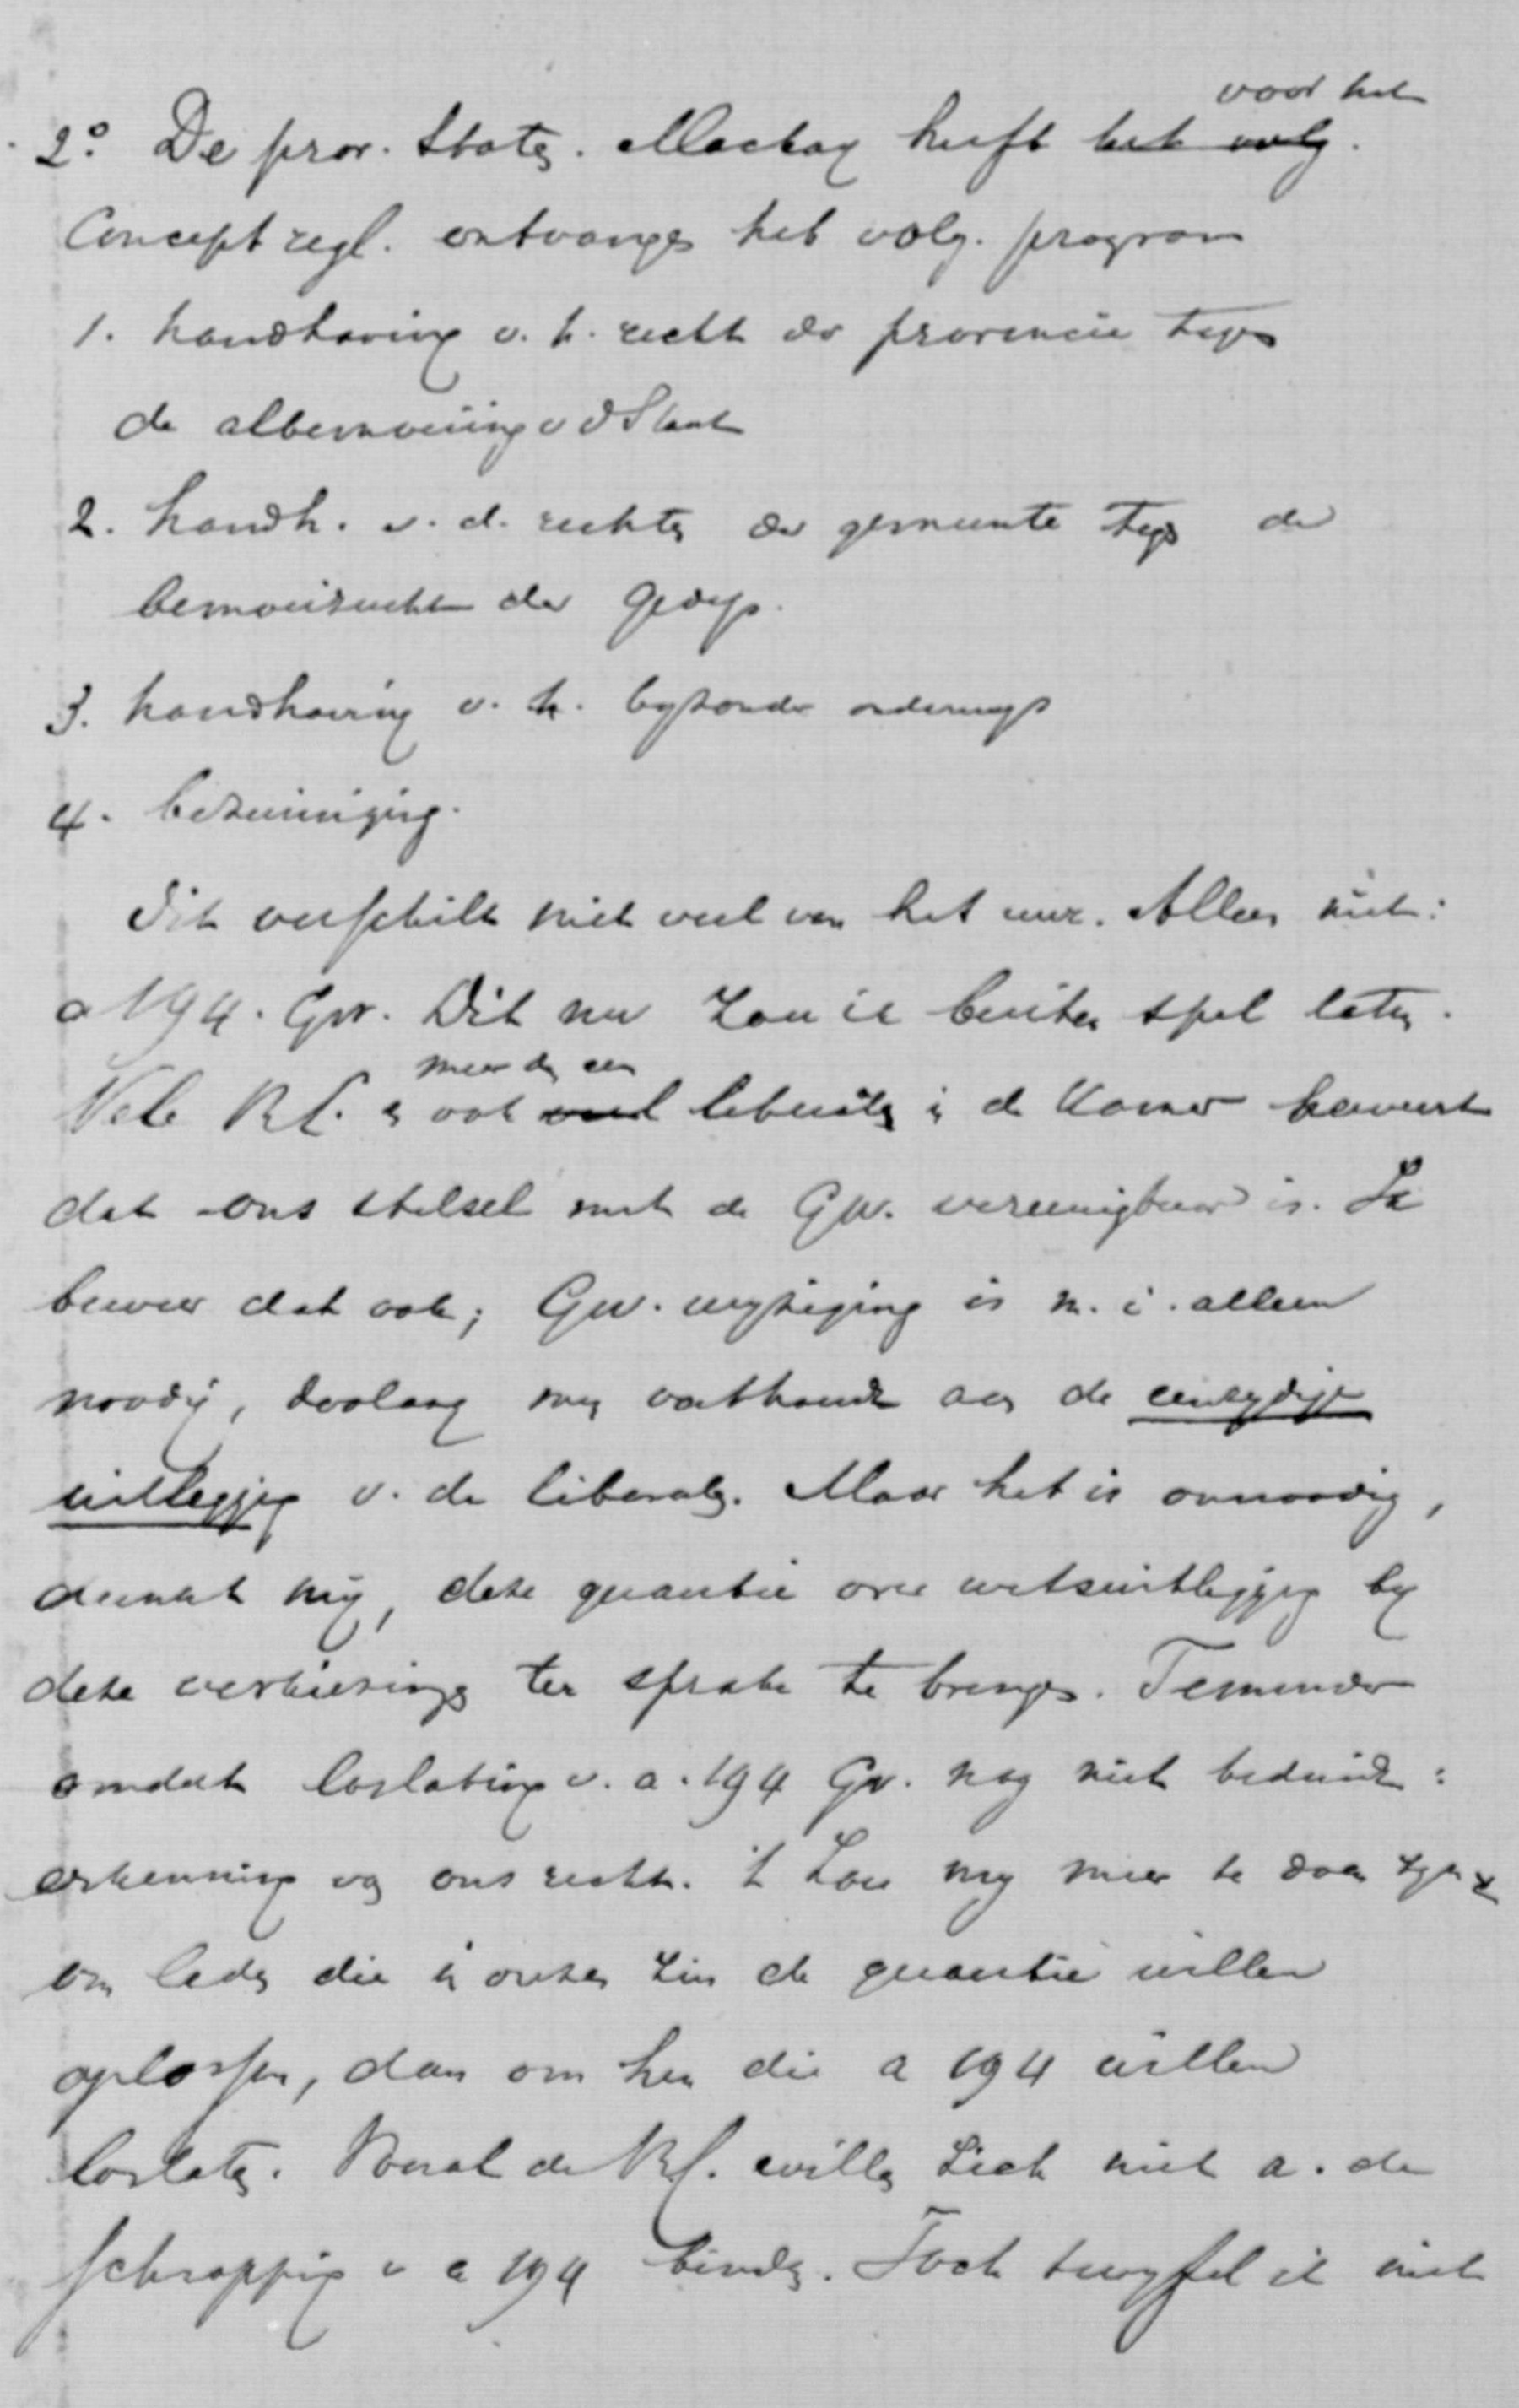 voor het
2° De prov. Staten. Mackay heeft het volg.
Concept regl. ontvangen het volg. program
1. handhaving v. h. recht der provincie tegen
de albemoeiing v d Staat
2. handh. v. d. rechten der gemeente tegen de
bemoeizucht der Gedep.
3. handhaving v. h. byzonder onderwys
4. bezuiniging.
Dit verschilt niet veel van het uwe. Alleen niet:
a 194. Gw. Dit nu zou ik buiten spel laten.
meer dan een
Vele RK. en ook veel liberalen in de Kamer beweert
dat ons stelsel met de Gw. vereenigbaar is. Ik
beweer dat ook; Gw. wyziging is m. i. alleen
noodig, zoolang men vasthoudt aan de eenzydige
uitlegging v. de liberalen. Maar het is onnoodig,
dunkt my, deze quaestie over wetsuitlegging by
deze verkiezingen ter sprake te brengen. Te minder
omdat loslating v. a. 194 Gw. nog niet beduidt:
erkenning van ons recht. 't Zou my meer te doen zyn
om leden die in onzen zin de quaestie willen
oplossen, dan om hen die a 194 willen
loslaten. Vooral de RK. willen zich niet a. de
schrapping v a 194 binden. Toch twyfel ik niet